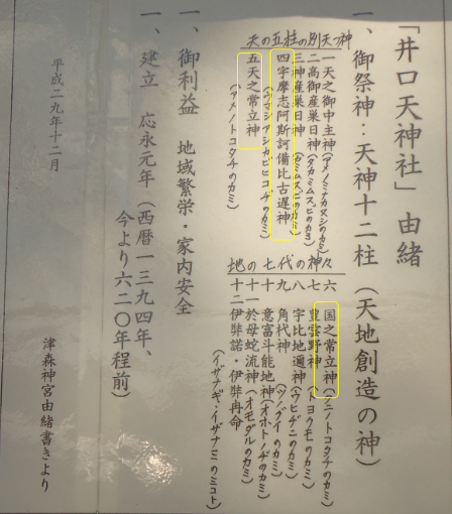 「井口天神社」由緒
一、御祭神：天神十二柱（天地創造の神）
天の五柱の別天つ神
一天之御中主神（アメノミナカヌシのカミ）
二高御産巣日神（タカミムスヒのカミ）
三神産巣日神（カミムスヒのカミ）
四宇摩志阿斯訶備比古遅神
（ウマシアシカビヒコヂのカミ）
五天之常立神
（アメノトコタチのカミ）
地の七代の神々
六 国之常立神（クニノトコタチのカミ）
七 豊雲野神（トヨクモノのカミ）
八 宇比地邇神（ウヒヂニのカミ）
九 角杙神（ツノグイのカミ）
十 意富斗能地神（オホトノヂのカミ）
十一 於母蛇流神（オモダルのカミ）
十二 伊弉諾・伊弉冉命
（イザナギ・イザナミのミコト）
一、御利益 地域繁栄・家内安全
一、建立 応永元年（西暦一三九四年、
今より六二〇年程前）
平成二九年十二月
津森神宮由緒書きより